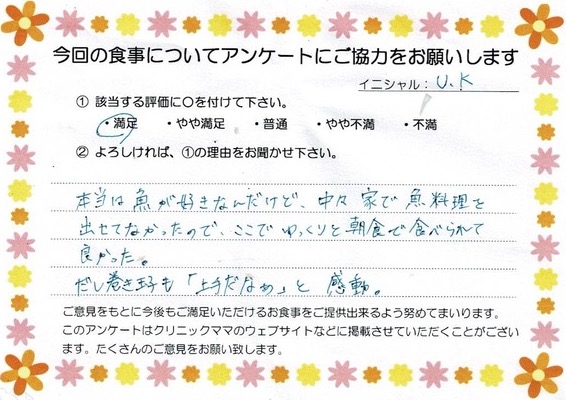 今回の食事についてアンケートにご協力をお願いします
イニシャル：U.K
① 該当する評価に○を付けて下さい。
・満足 ・やや満足 ・普通 ・やや不満 ・不満
② よろしければ、①の理由をお聞かせ下さい。
本当は魚が好きなんだけど、中々家で魚料理を
出せてなかったので、ここでゆっくりと朝食で食べられて
良かった。
だし巻き玉子も「上手だなぁ」と感動。
ご意見をもとに今後もご満足いただけるお食事をご提供出来るよう努めてまいります。
このアンケートはクリニックママのウェブサイトなどに掲載させていただくことがござい
ます。たくさんのご意見をお願い致します。